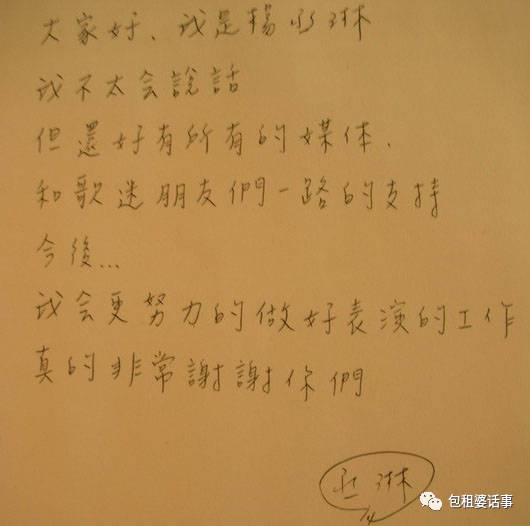 大家好、我是楊丞琳
我不太会說話
但還好有所有的媒体、
和歌迷朋友們一路的支持
今後...
我会更努力的做好表演的工作
真的非常謝謝你們
丞琳
包租婆话事